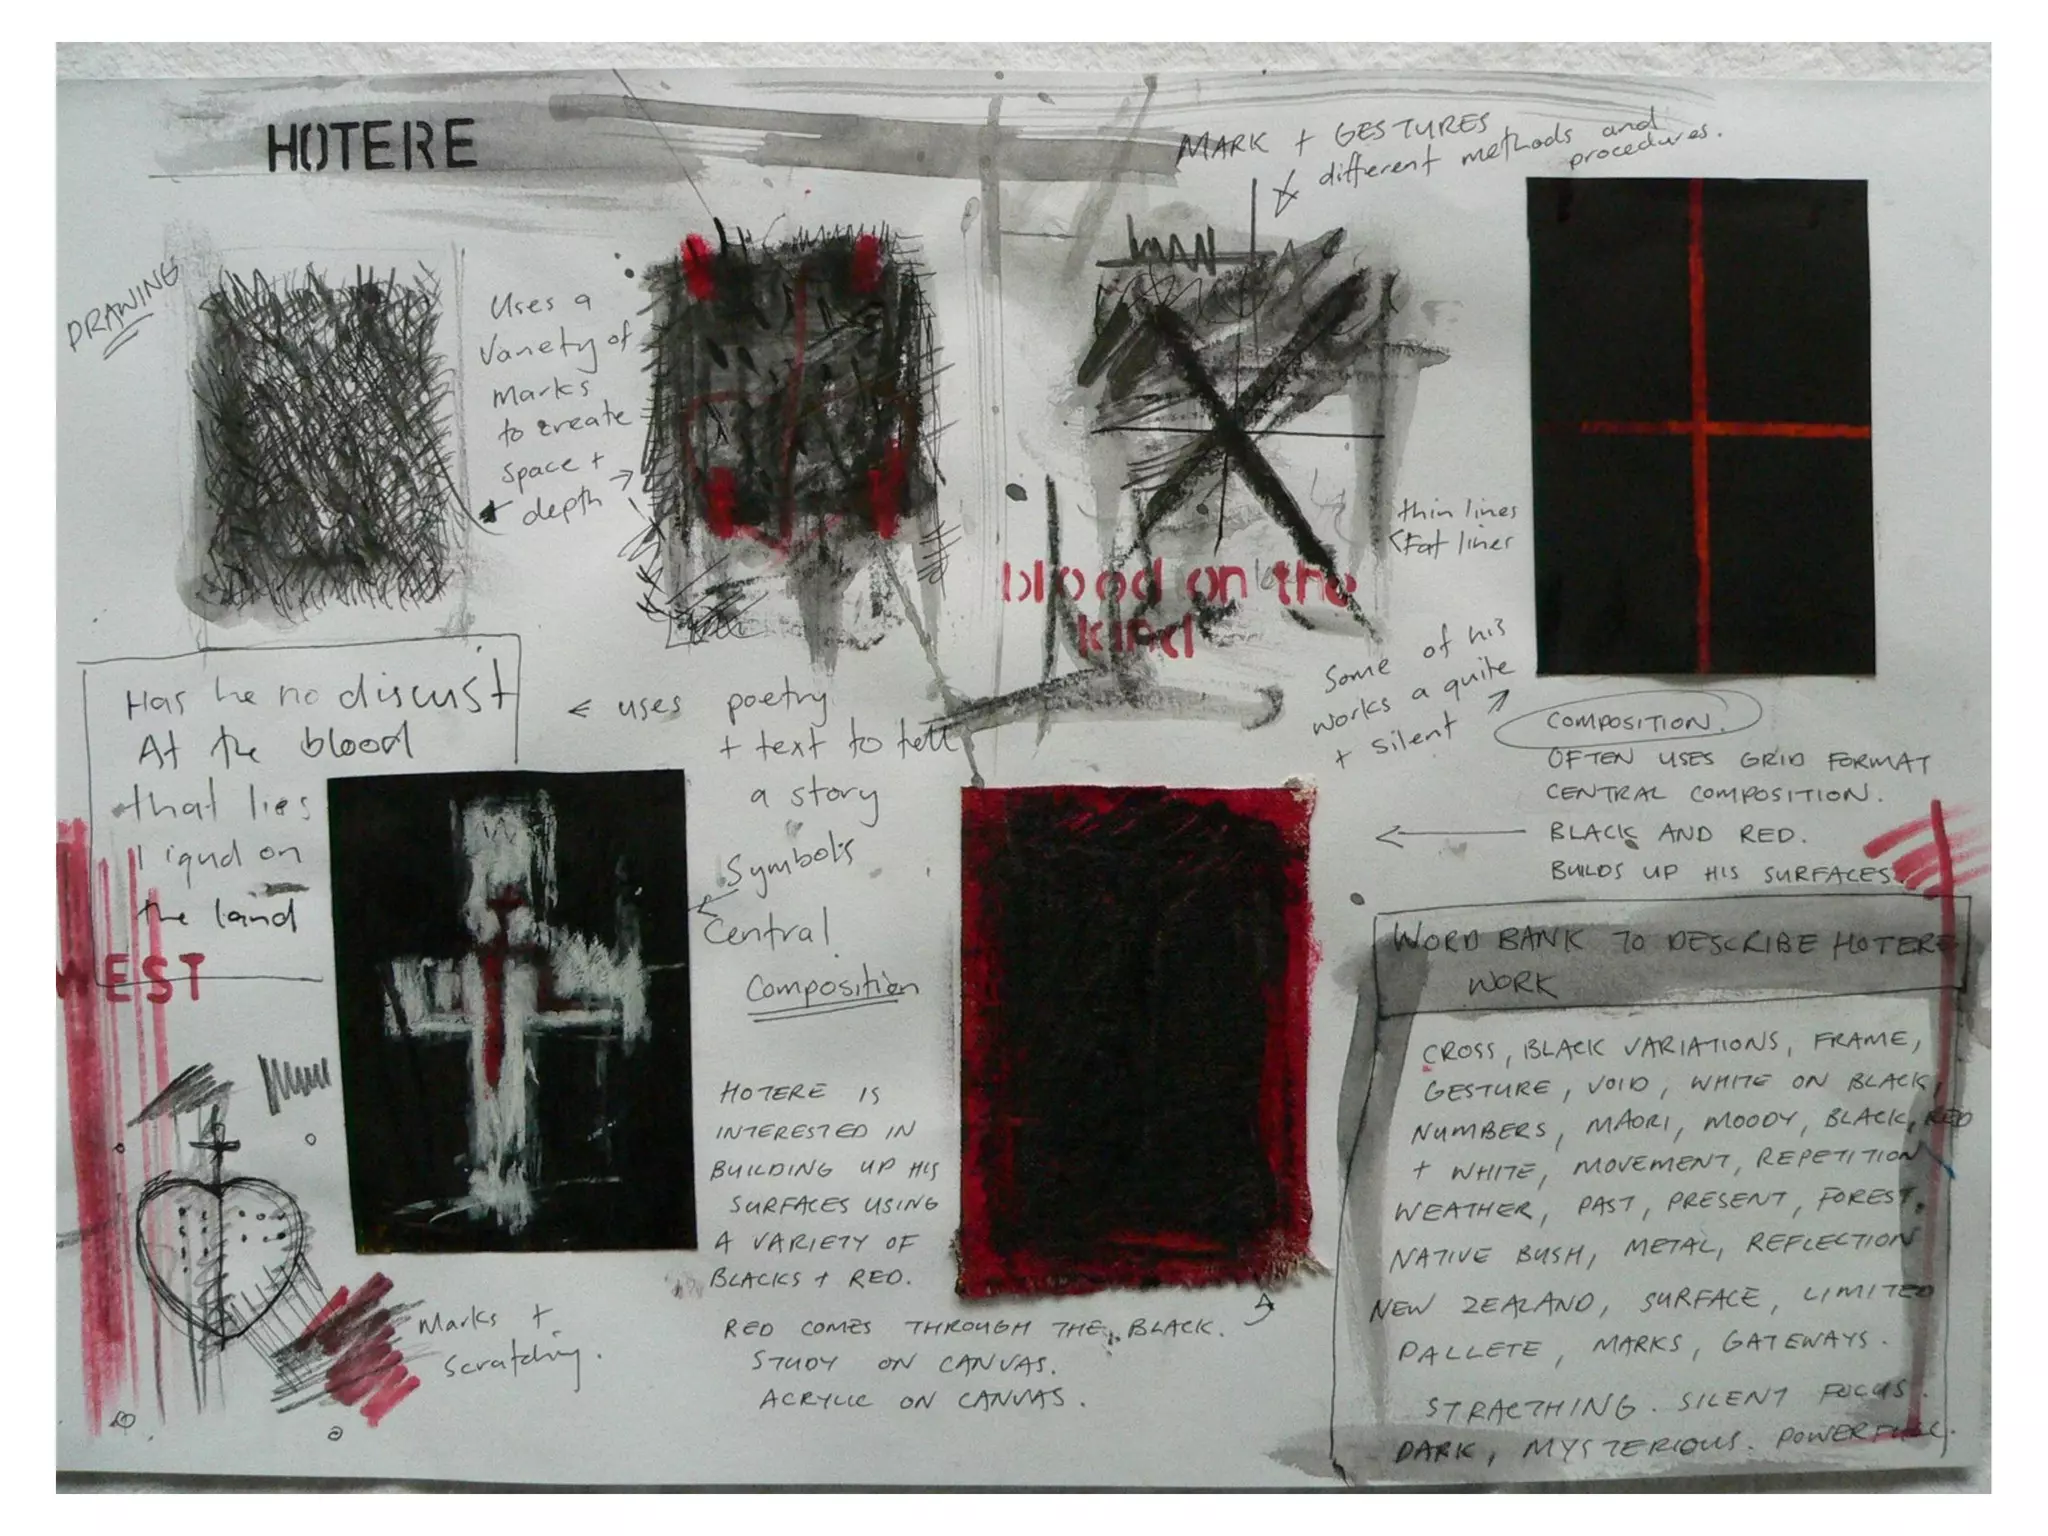 HOTERE
MARK + GESTURES
different methods and
procedures.
DRAWING
Uses a
Variety of
marks
to create
space +
depth
thin lines
Fat lines
blood on the
kind
Some of his
works a quite
+ silent
Has he no discust
At the blood
that lies
liqud on
the land
WEST
uses poetry
+ text to tell
a story
Symbols
Central
Composition
COMPOSITION.
OFTEN USES GRID FORMAT
CENTRAL COMPOSITION.
BLACK AND RED.
BUILDS UP HIS SURFACES.
HOTERE IS
INTERESTED IN
BUILDING UP HIS
SURFACES USING
A VARIETY OF
BLACKS + RED.
RED COMES THROUGH THE BLACK.
STUDY ON CANVAS.
ACRYLIC ON CANVAS.
Marks +
Scratching.
WORD BANK TO DESCRIBE HOTERE
WORK
CROSS, BLACK VARIATIONS, FRAME,
GESTURE, VOID, WHITE ON BLACK,
NUMBERS, MAORI, MOODY, BLACK, RED
+ WHITE, MOVEMENT, REPETITION
WEATHER, PAST, PRESENT, FOREST,
NATIVE BUSH, METAL, REFLECTION
NEW ZEALAND, SURFACE, LIMITED
PALLETE, MARKS, GATEWAYS.
STRACTHING. SILENT FOCUS.
DARK, MYSTERIOUS. POWERFULL.